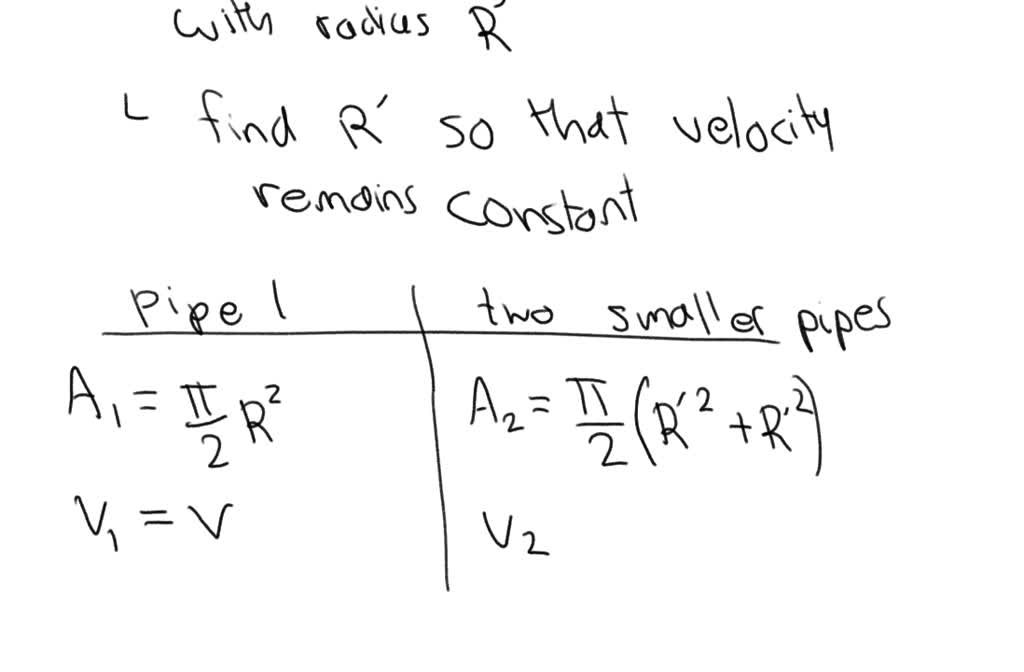 with radius R'
└ find R' so that velocity
remains constant
pipe 1 | two smaller pipes
A₁ = π/2 R² | A₂ = π/2 (R'² + R'²)
V₁ = V | V₂